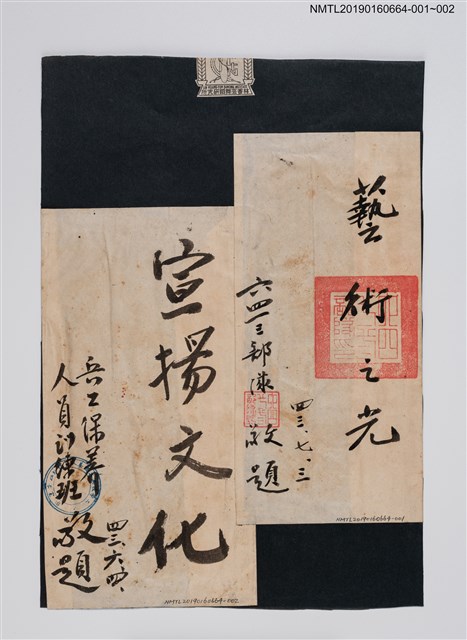 NMTL20190160664-001~002
藝術之光
四三、七、三
六四一三部隊
敬題
NMTL20190160664-001
宣揚文化
四三、六、四、
兵工保養
人員訓練班 敬題
NMTL20190160664-002